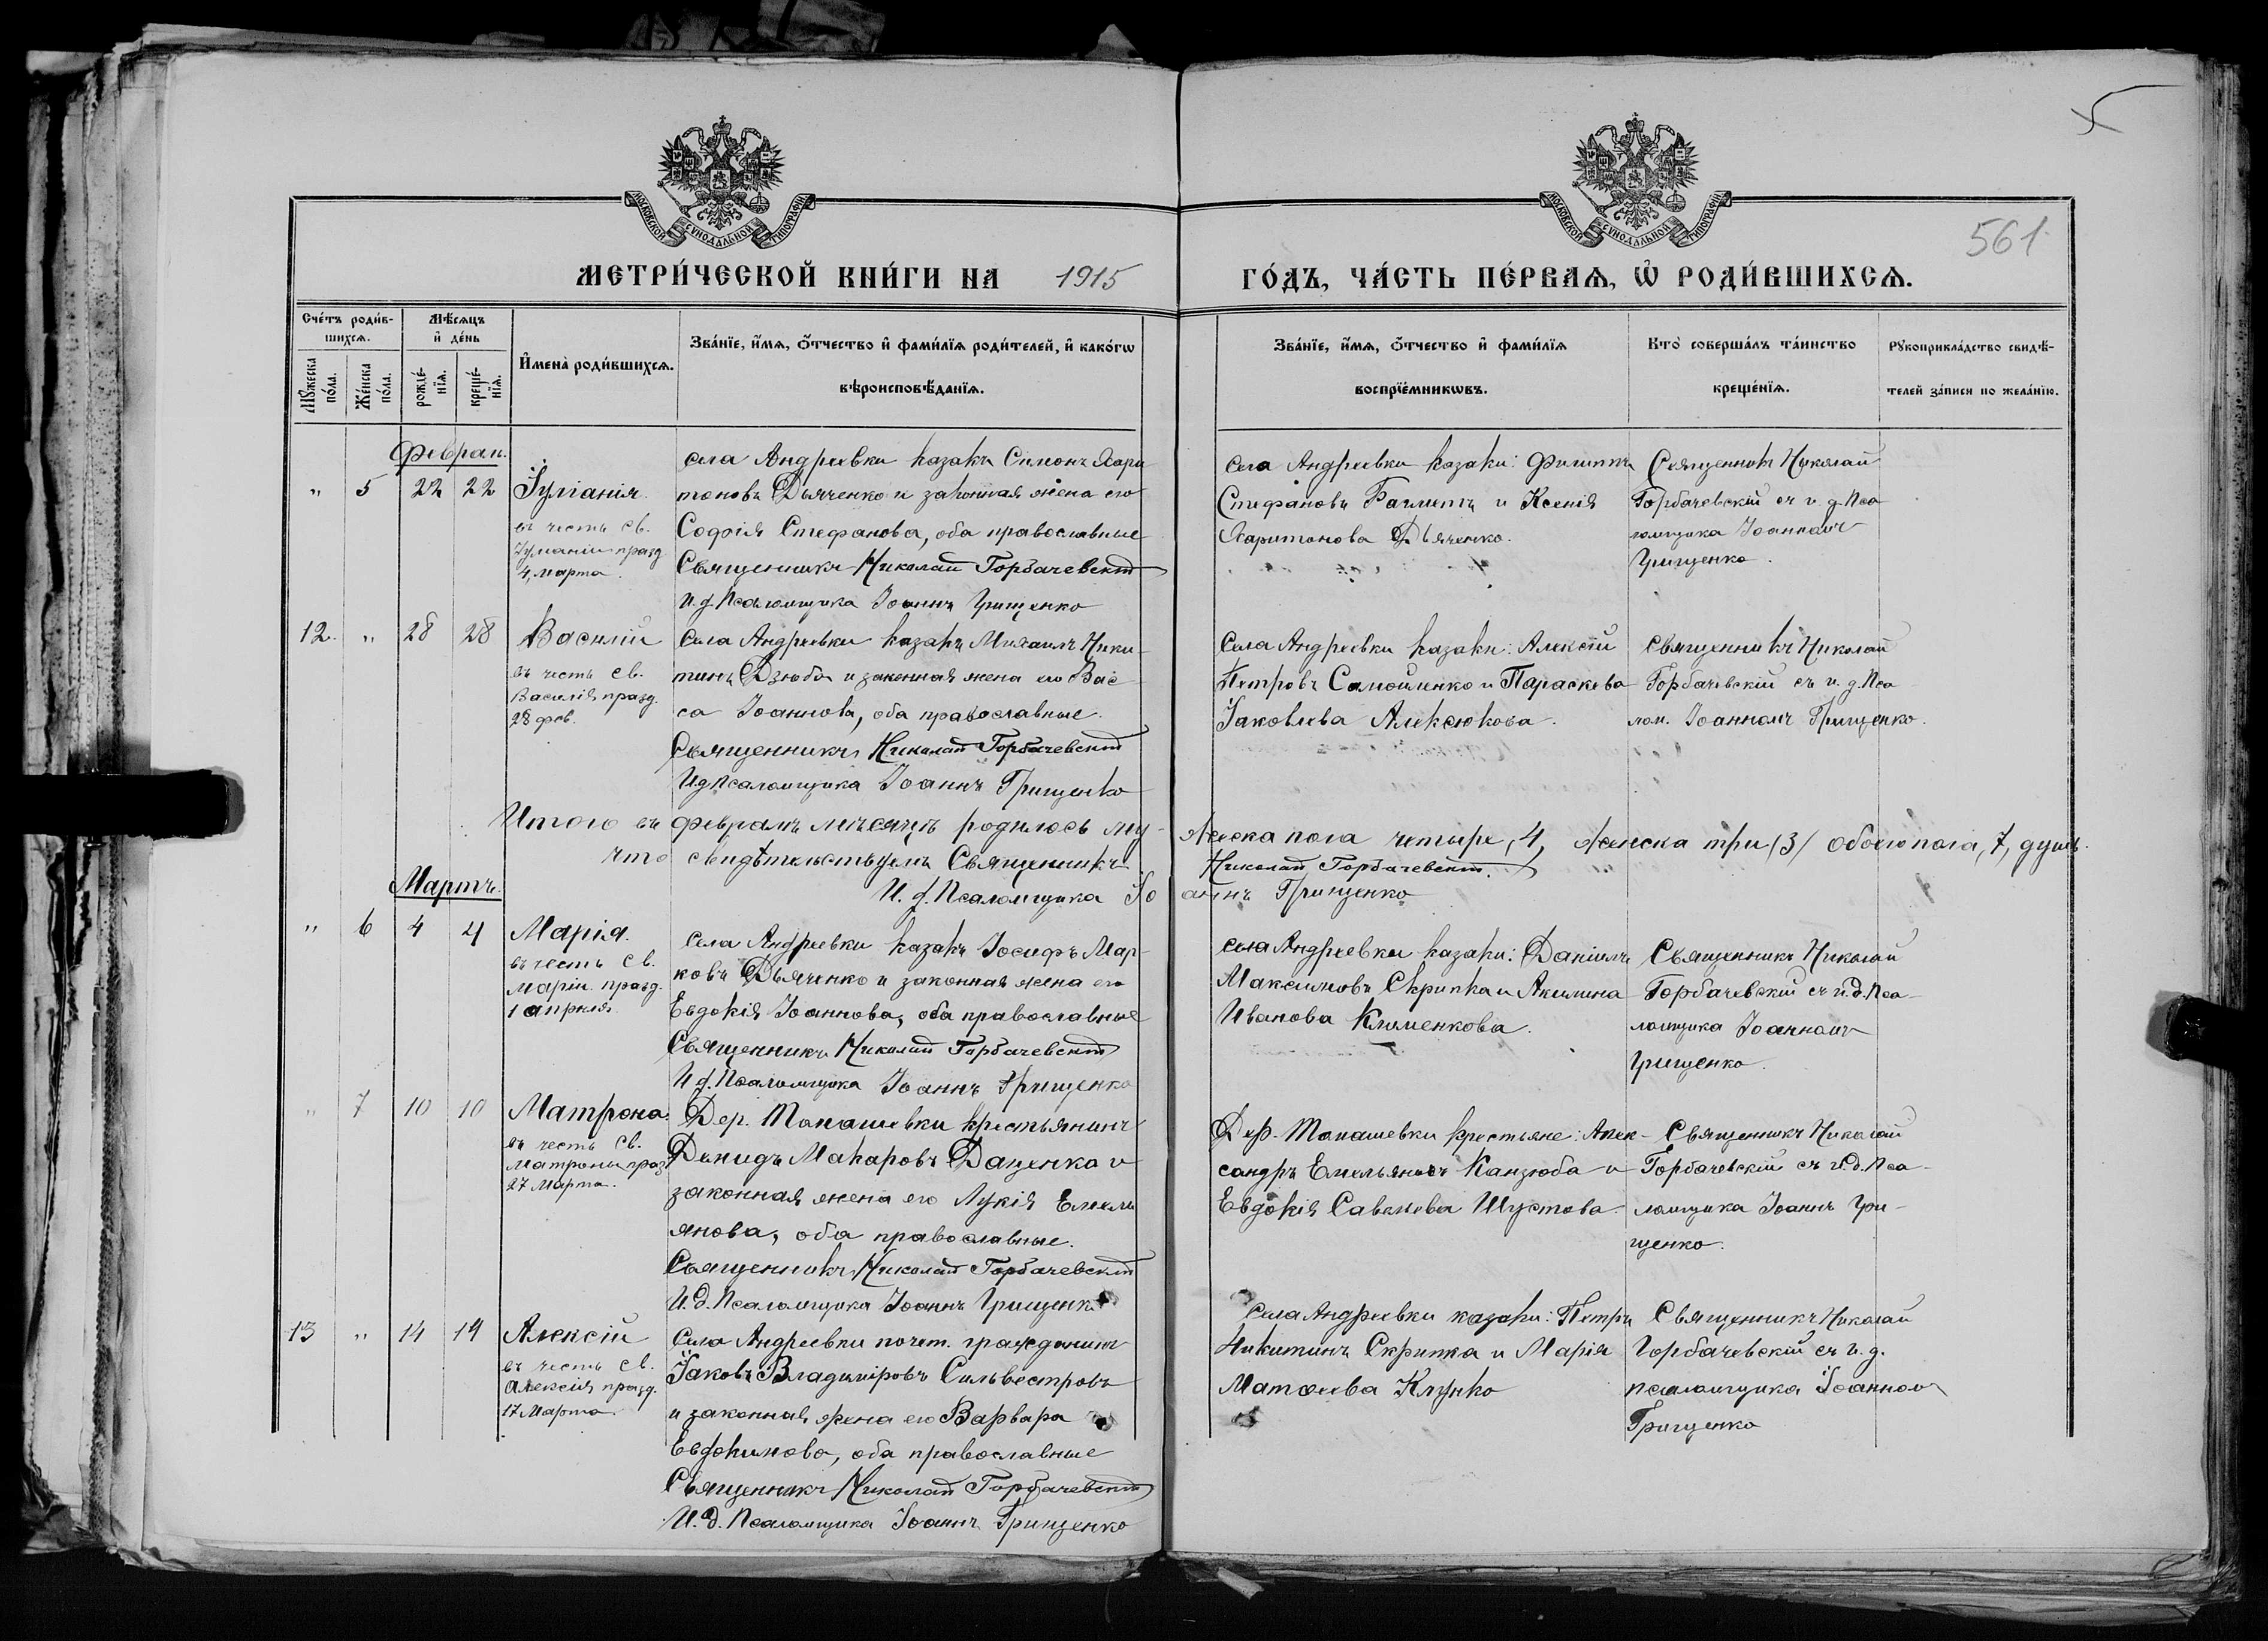 5
561
МОСКОВСКОЙ СѴНОДАЛЬНОЙ ТИПОГРАФІИ
МОСКОВСКОЙ СѴНОДАЛЬНОЙ ТИПОГРАФІИ
МЕТРИ́ЧЕСКОЙ КНИ́ГИ НА 1915 ГО́ДЪ, ЧА́СТЬ ПЕ́РВАѦ, Ѡ҆ РОДИ́ВШИХСѦ.
Сче́тъ роди́в-
шихсѧ.
Мꙋ́жеска по́ла.
Же́нска по́ла.
Мѣ́сѧцъ
и҆ де́нь
рожде́-
нїѧ.
креще́-
нїѧ.
И҆мена̀ роди́вшихсѧ.
Зва́нїе, и҆́мѧ, ѻ҆́тчество и҆ фами́лїѧ роди́телей, и҆ како́гѡ
вѣроисповѣ́данїѧ.
Зва́нїе, и҆́мѧ, ѻ҆́тчество и҆ фами́лїѧ
воспрїе́мникѡвъ.
Кто̀ соверша́лъ та́инство
креще́нїѧ.
Рꙋкоприкла́дство свидѣ́-
телей за́писи по жела́нїю.
Феврал.
" 5 22 22 Іуліанія
въ честь св.
Іуліаніи празд.
4, марта.
села Андреевки казакъ Симонъ Хари
тоновъ Дьяченко и законная жена его
Софія Стефанова, оба православные
Священникъ Николай Горбачевскій
И.д. Псаломщика Іоаннъ Грищенко
села Андреевки казаки: Филиппъ
Стефановъ и Ксенія
Харитонова Дьяченко.
Священникъ Николай
Горбачевскій съ и. д. Пса
ломщика Іоанномъ
Грищенко.
12. " 28 28 Василій
въ честь св.
Василія празд.
28 фев.
Села Андреевки казакъ Михаилъ Ники-
тинъ Дзюба и законная жена его Вас
са Іоаннова, оба православные.
Священникъ Николай Горбачевскій
И.д Псаломщика Іоаннъ Грищенко
Села Андреевки казаки: Алексій
Петровъ Самойленко и Параскева
Іаковлева Алексюкова.
Священникъ Николай
Горбачевскій съ и. д. Пса
лом. Іоанномъ Грищенко.
Итого въ февралѣ мѣсяцѣ родилось му-жеска пола четыре, 4, женска три /3/ обоего пола, 7, душъ.
что свидѣтельствуемъ Священникъ Николай Горбачевскій.
И. д. Псаломщика Іоаннъ Грищенко
Мартъ.
" 6 4 4 Марія.
въ честь св.
Маріи празд.
1 апрѣля.
Села Андреевки казакъ Іосифъ Мар-
ковъ Дьяченко и законная жена его
Евдокія Іоаннова, оба православные
Священникъ Николай Горбачевскій
И д. Псаломщика Іоаннъ Грищенко
села Андреевки казаки: Даніилъ
Максимовъ Скрипка и Акилина
Иванова Клименкова.
Священникъ Николай
Горбачевскій съ и.д. Пса-
ломщика Іоанномъ
Грищенко.
" 7 10 10 Матрона.
въ честь св.
Матроны праз
27 Марта.
Дер. крестьянинъ
Макаровъ Даценко и
законная жена его Лукія Емели
янова, оба православные.
Священникъ Николай Горбачевскій
И.д. Псаломщика Іоаннъ Грищенко
Дер. крестьяне: Алек-
сандръ Емельяновъ Канзюба и
Евдокія Савельева Шустова.
Священникъ Николай
Горбачевскій съ и.д. Пса-
ломщика Іоаннъ Гри-
щенко.
13 " 14 14 Алексій
въ честь св.
Алексія празд.
17 Марта.
Села Андреевки почет. гражданинъ
Іаковъ Владиміровъ Сильвестровъ
и законная жена его Варвара
Евдокимова, оба православные
Священникъ Николай Горбачевскій
И.д. Псаломщика Іоаннъ Грищенко
Села Андреевки казаки: Петръ
Никитинъ Скрипка и Марія
Матѳеева Клунко
Священникъ Николай
Горбачевскій съ и. д.
псаломщика Іоанномъ
Грищенко